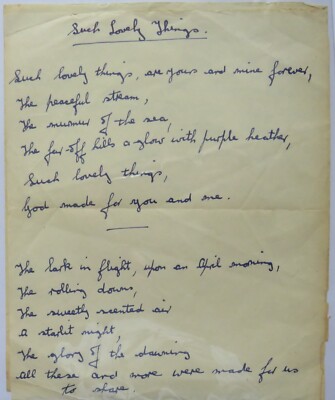 Such Lovely Things.
Such lovely things, are yours and mine forever,
The peaceful stream,
The murmur of the sea,
The far-off hills a glow with purple heather,
Such lovely things,
God made for you and me.
The lark in flight, upon an April morning,
The rolling downs,
The sweetly scented air
a starlit night,
The glory of the dawning
all these and more were made for us
to share.